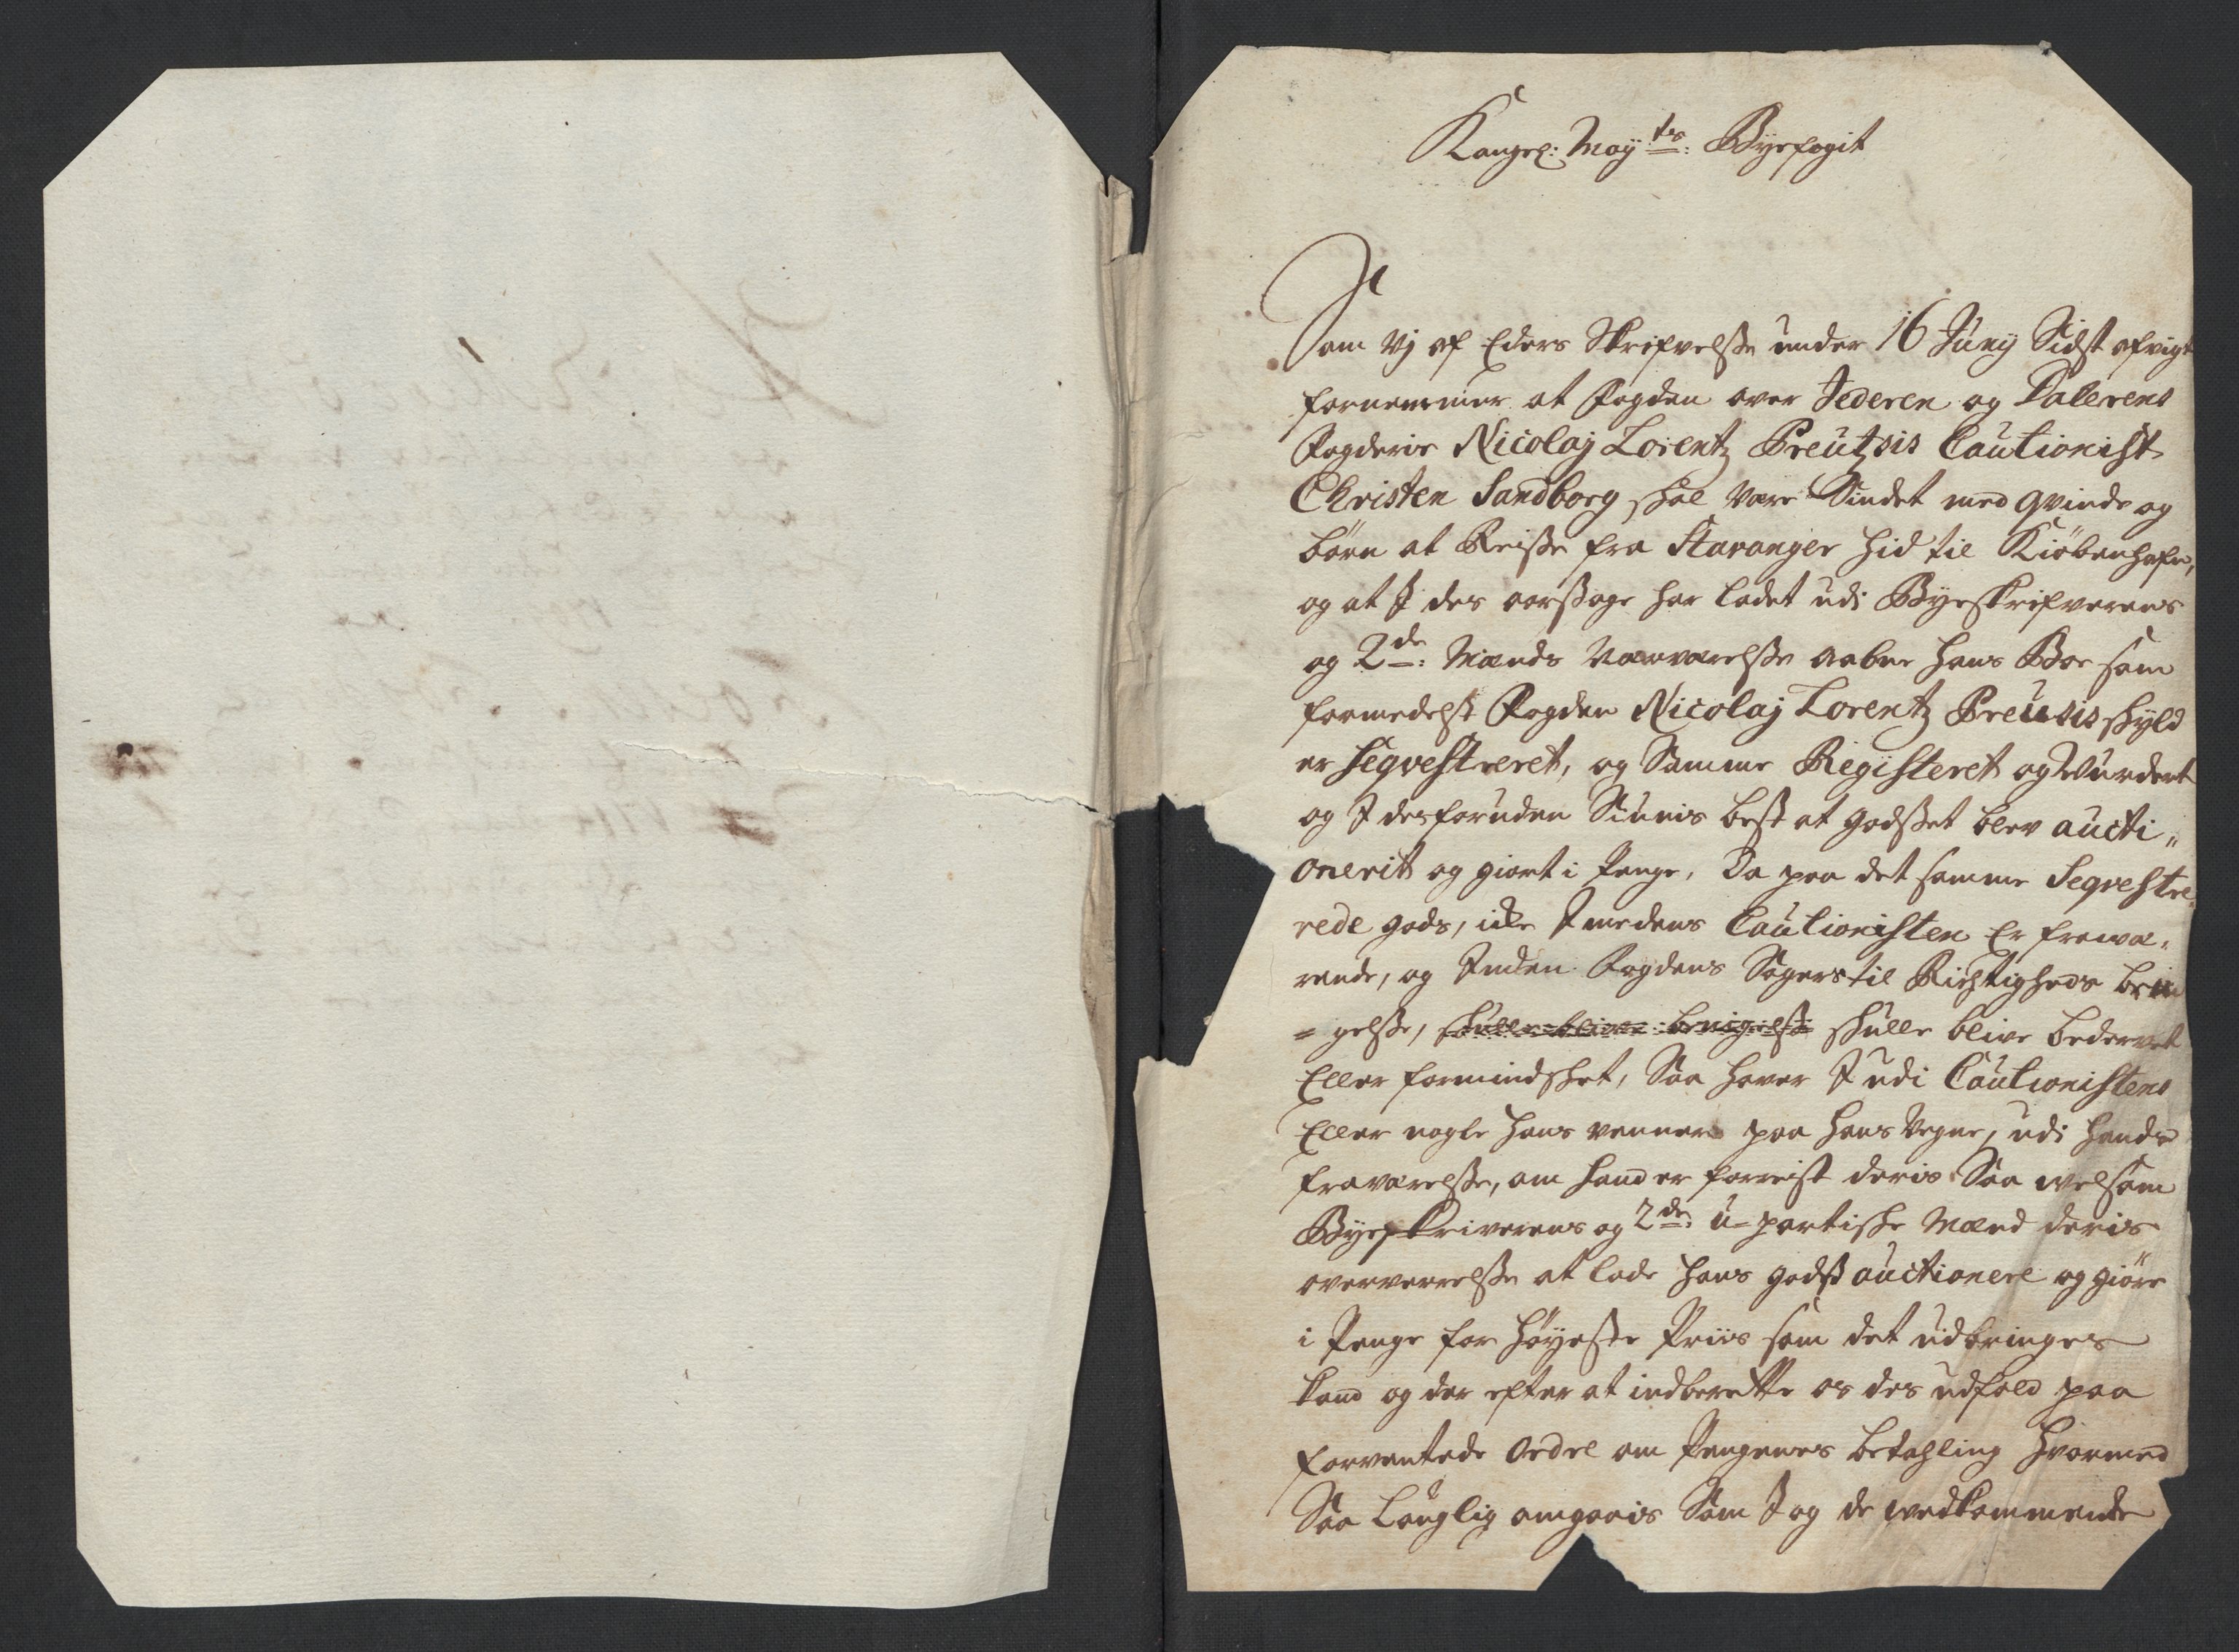 Kongel: May<sup>ts</sup>: Byefogit
Som Vj af Eders Skrifvelsse under 16 Juny Sidst afvigt
fornemmer at Fogden over Jederen og Dalerens
Fogderie Nicolaj Lorentz Preutzsis Cautionist
Christen Sandborg skal være Sindet med qvinde og
børn at Reisse fra Stavanger hid til Kiøbenhafn,
og at I des aarsage har ladet udi Byeskrifverens
og 2de: Mænds nærværelsse aabne hans Boe som
formedelst Fogden Nicolaj Lorentz Preusis skyld
er Seqvestreret, og Samme Registeret og Vurdert
og I desforuden Siunis best at godsset blev aucti„
onerit og giort i Penge, Da paa det samme Seqvestre„
rede gods, icke Imedens Cautionisten Er fravæ„
rende, og Inden Fogdens Sager til Richtigheds brin
= gelsse, skulle blive bringelsse skulle blive bedervet
Eller formindsket, Saa haver I udi Cautionistens
Eller nogle hans venner paa hans Vegne, udi hands
fraværelsse, om hand er forreist deris Saa velsom
Byeskriverens og 2de: u-partiske Mænd deris
overværelsse at lade hans godss auctionere og giøre
i Penge for høyeste Priis som det udbringes
kand og der efter at indberette os des udfald paa
forventede Ordre om Pengenes betahling hvormed
Saa lauglig omgaais Som I og de vedkommende